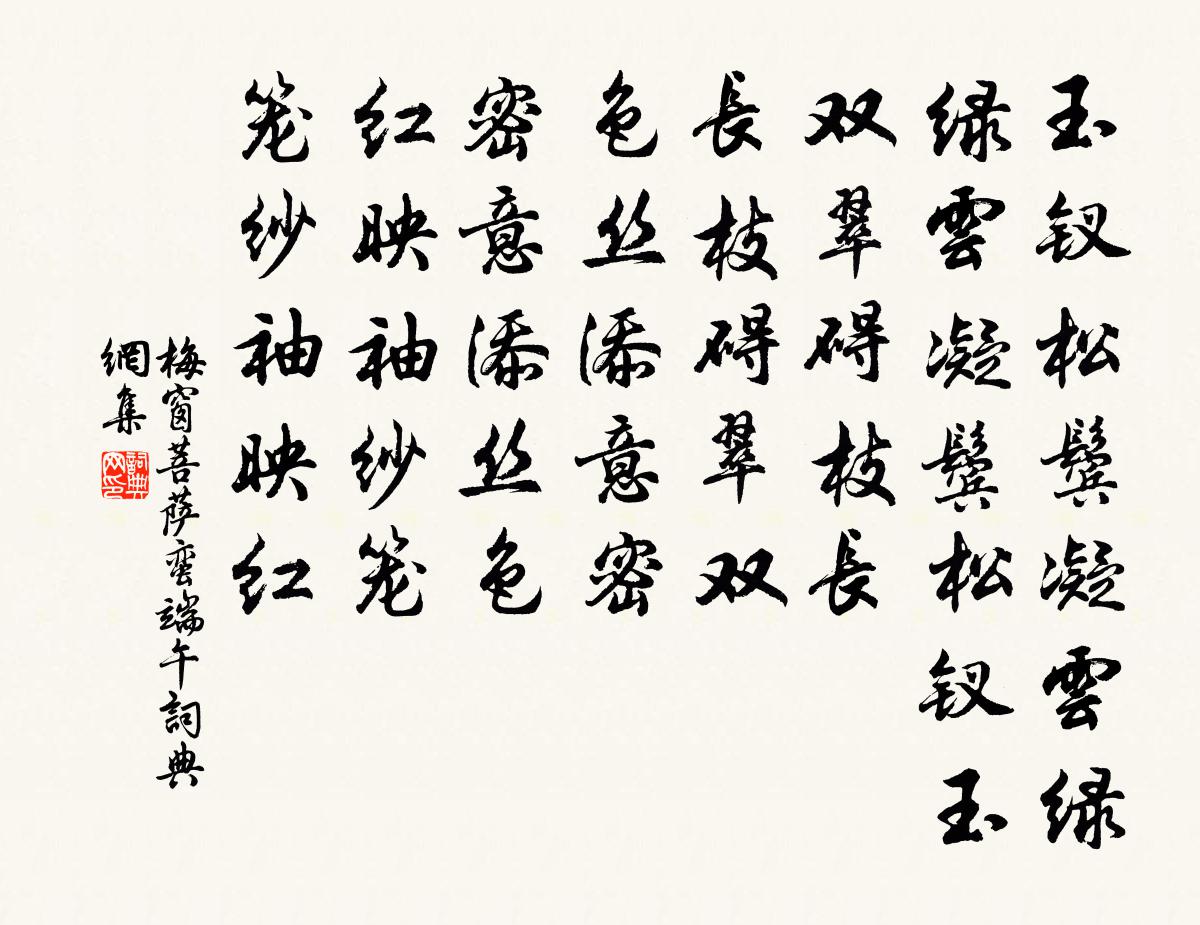 玉钗松鬓凝雲绿
绿雲凝鬓松钗玉
双翠碍枝長
長枝碍翠双
色丝添意密
密意添丝色
红映袖纱笼
笼纱袖映红
梅窗菩萨蛮端午詞典
網集
詞典
网印